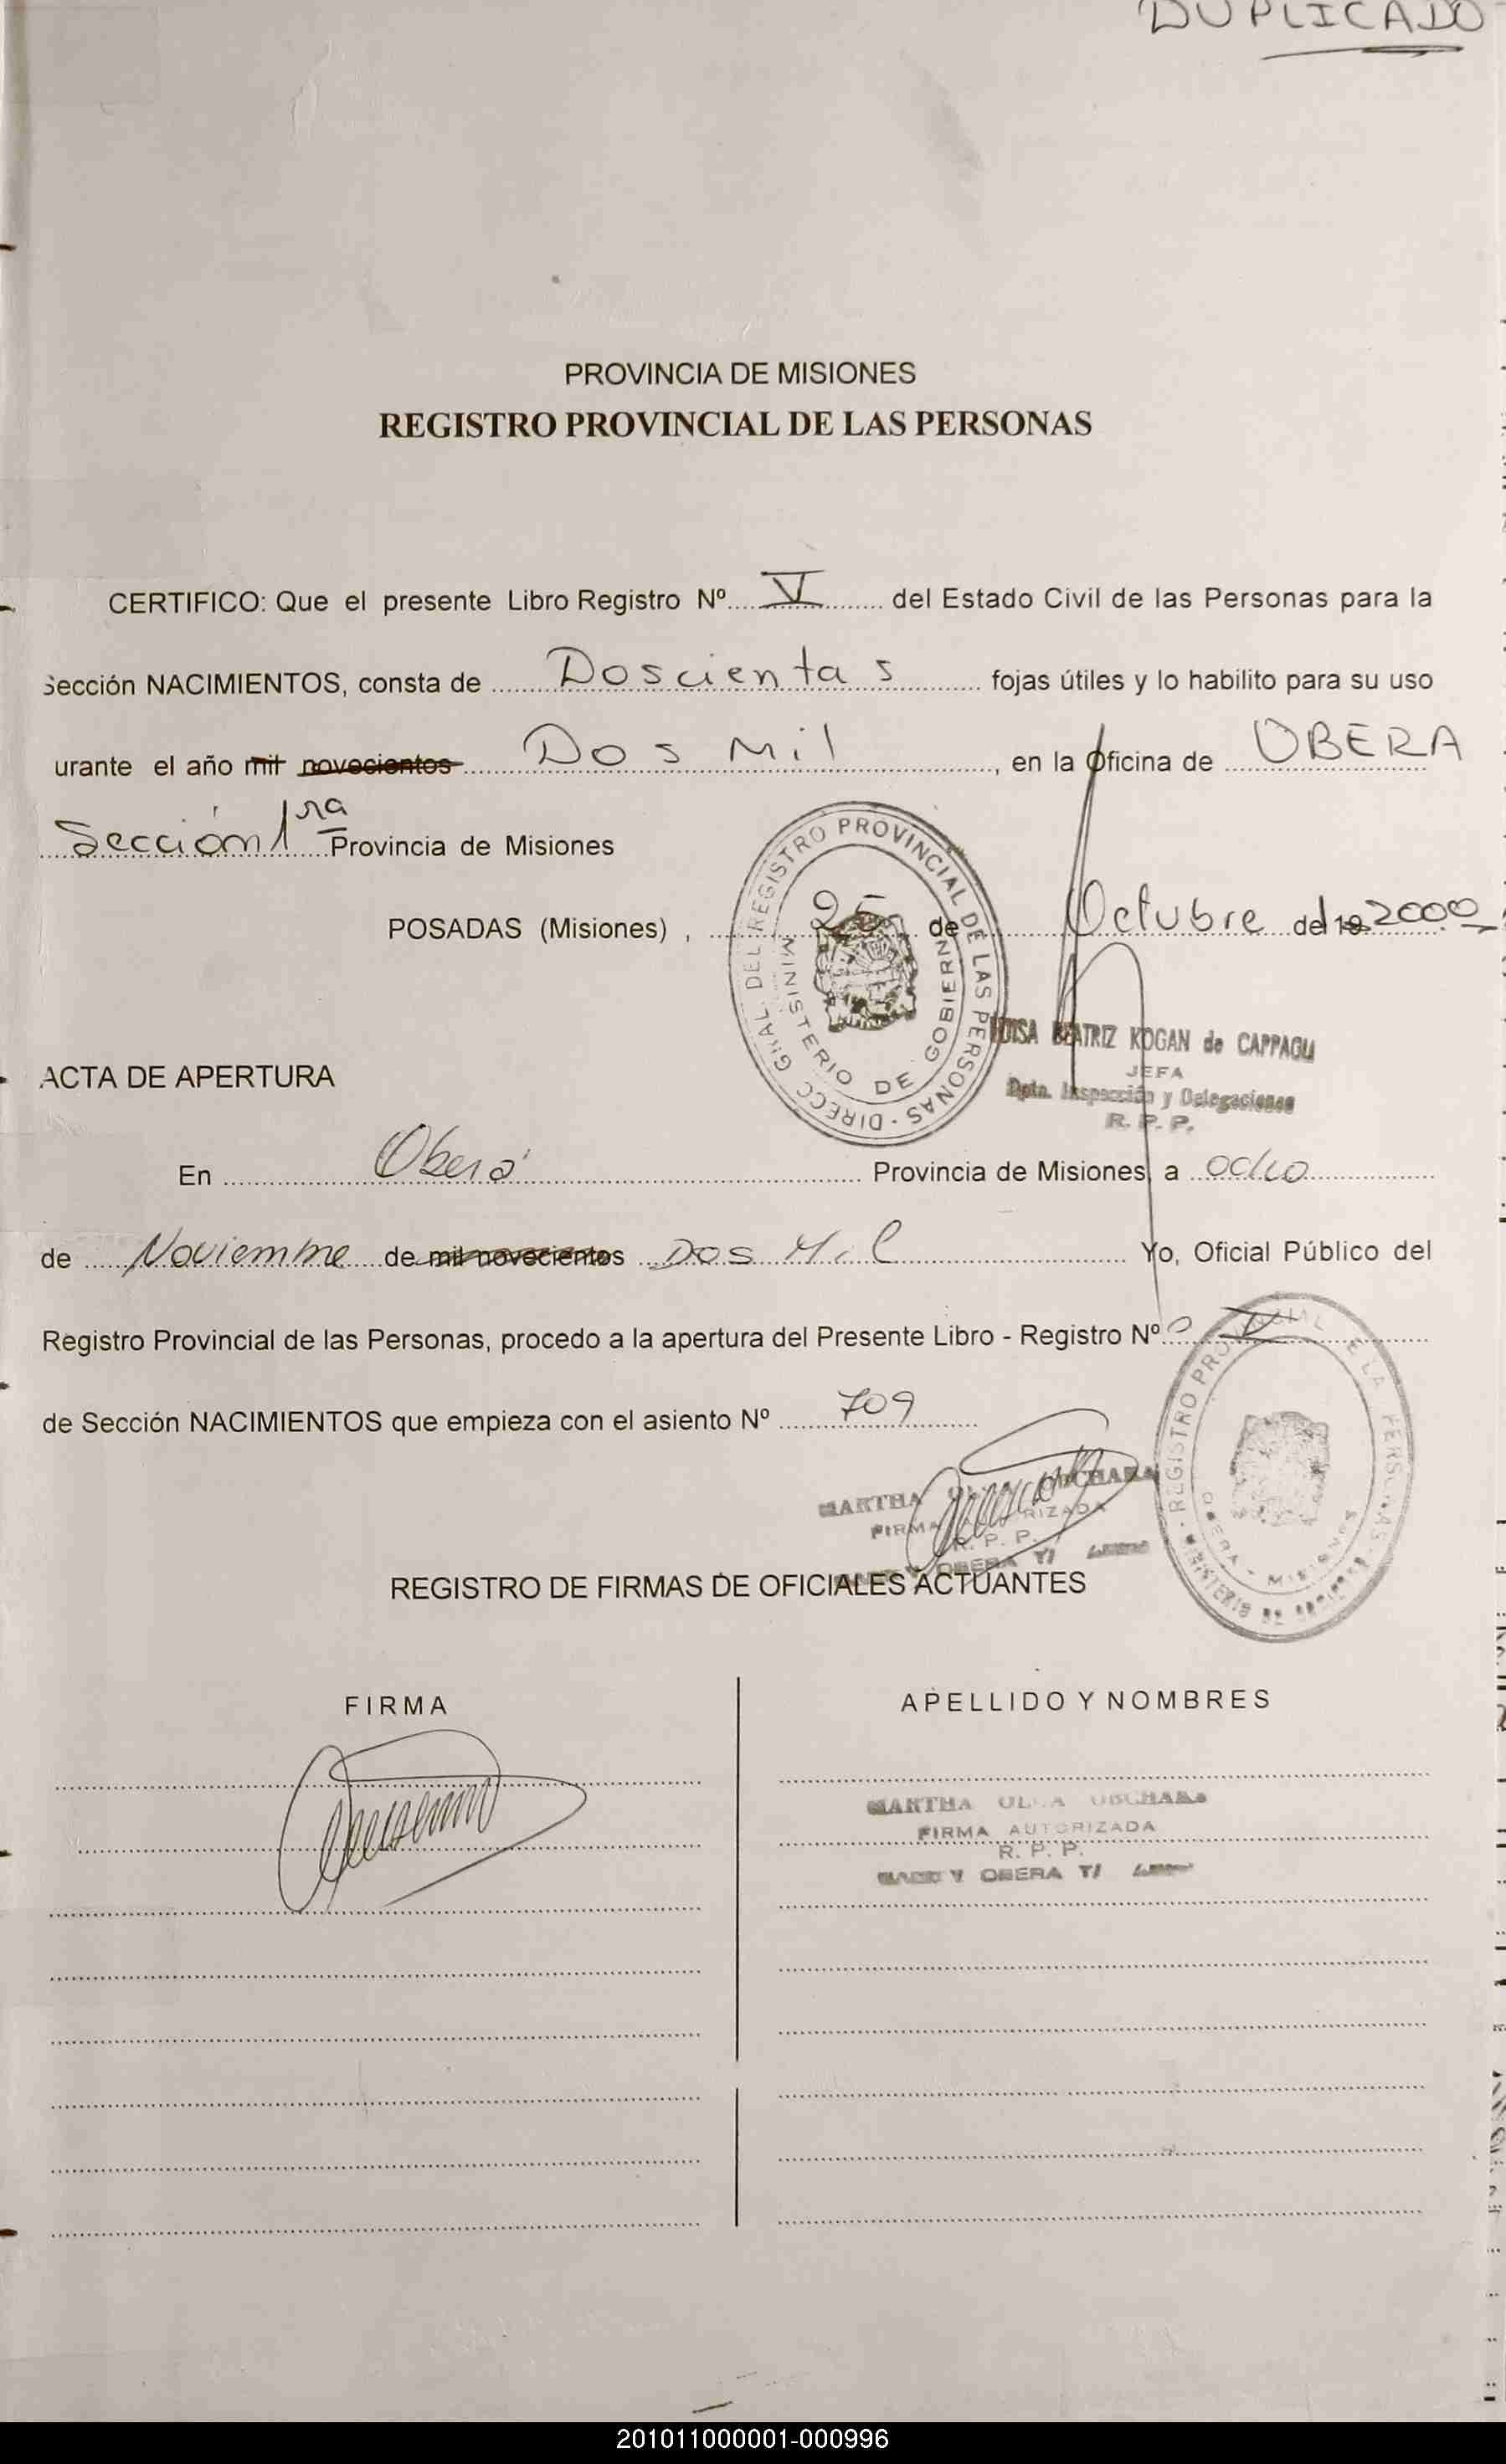 DUPLICADO
PROVINCIA DE MISIONES
REGISTRO PROVINCIAL DE LAS PERSONAS
CERTIFICO: Que el presente Libro Registro Nº.... V ........ del Estado Civil de las Personas para la
Sección NACIMIENTOS, consta de ........ Doscientas ............ fojas útiles y lo habilito para su uso
urante el año mil novecientos ........ Dos Mil ................, en la Oficina de .... OBERA
Sección 1ra Provincia de Misiones
POSADAS (Misiones) , ........ 25 .... de ........ Octubre del 19 2000
DIRECC GRAL. DEL REGISTRO PROVINCIAL DE LAS PERSONAS -
MINISTERIO DE GOBIERNO
LUISA BEATRIZ KOGAN de CAPPAGLI
JEFA
Dpto. Inspección y Delegaciones
R. P. P.
ACTA DE APERTURA
En ................ Oberá ........................ Provincia de Misiones, a .. ocho ............
de .... Noviembre .... de mil novecientos .. Dos Mil ........................ Yo, Oficial Público del
Registro Provincial de las Personas, procedo a la apertura del Presente Libro - Registro Nº.... V ............
de Sección NACIMIENTOS que empieza con el asiento Nº ...... 709 ......
MARTHA
FIRMA AUTORIZADA
R. P. P.
OBERA
REGISTRO PROVINCIAL DE LAS PERSONAS -
OBERA - MISIONES
MINISTERIO DE GOBIERNO
REGISTRO DE FIRMAS DE OFICIALES ACTUANTES
FIRMA
APELLIDO Y NOMBRES
MARTHA OLGA
FIRMA AUTORIZADA
R. P. P.
OBERA
201011000001-000996